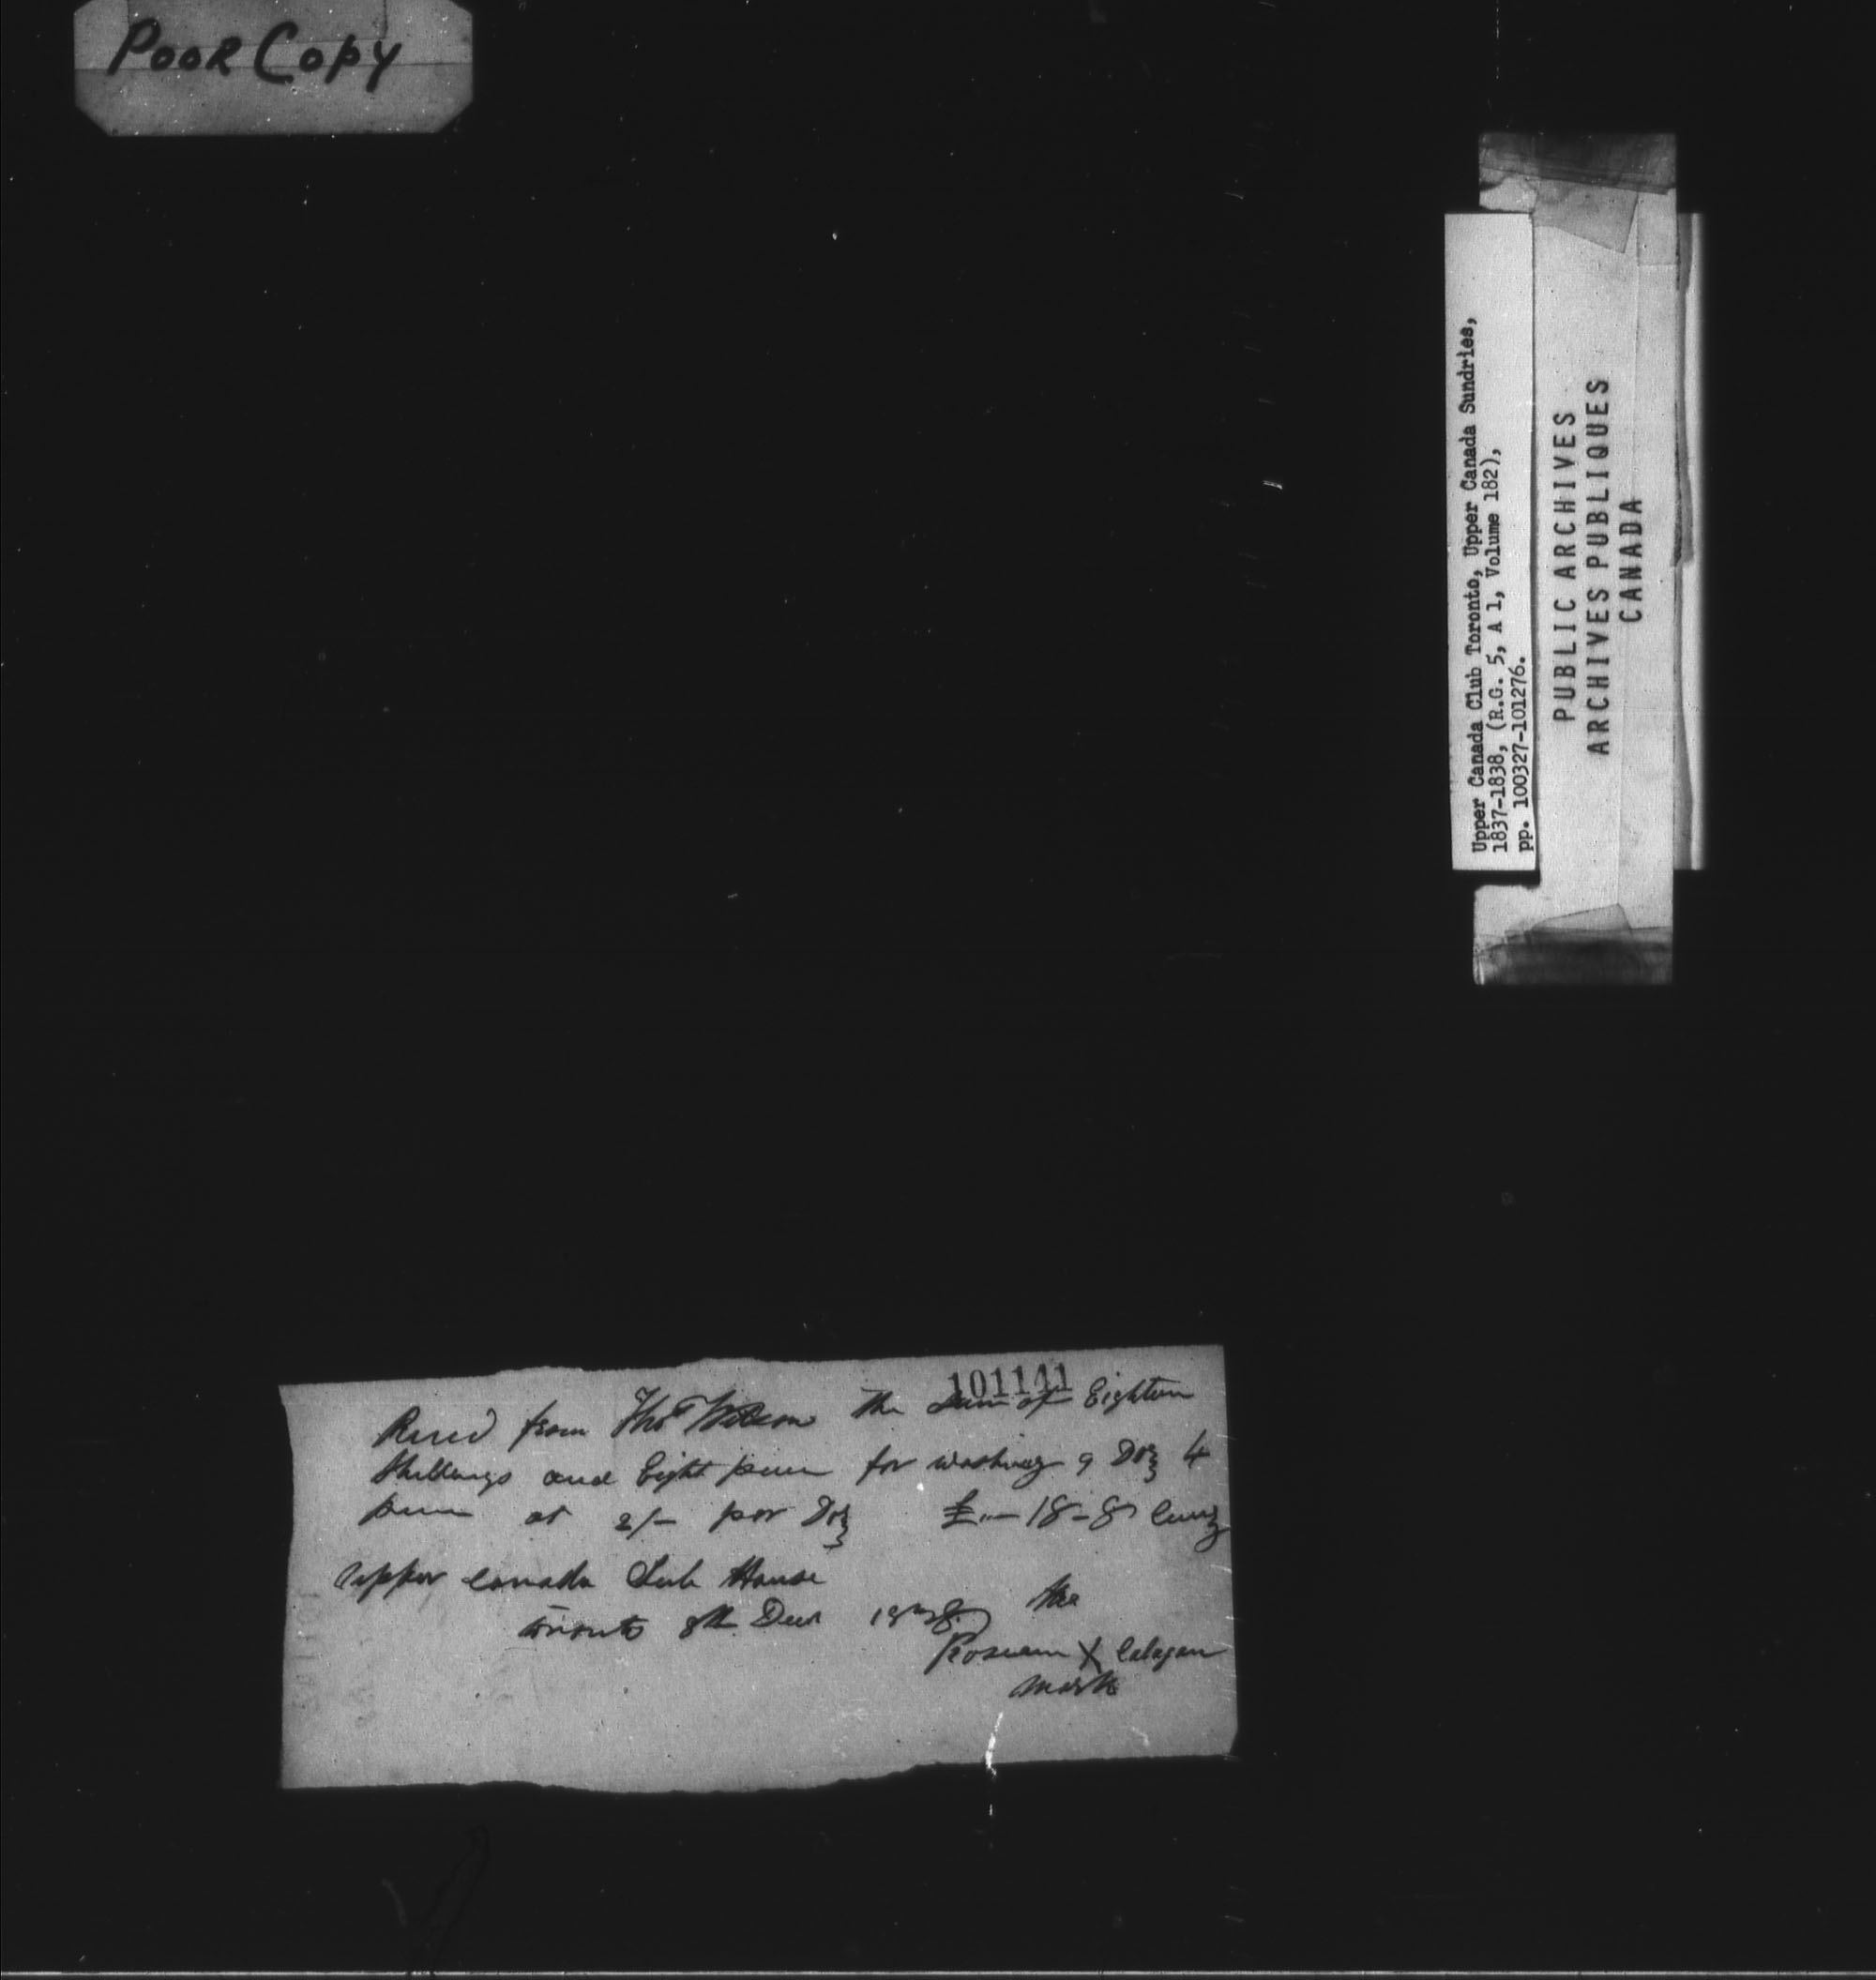 Poor Copy
Upper Canada Club Toronto, Upper Canada Sundries,
1837-1838, (R.G. 5, A 1, Volume 182),
pp. 100327-101276.
PUBLIC ARCHIVES
ARCHIVES PUBLIQUES
CANADA
101141
Recd from Thos Wilson the Sum of Eighteen
Shillings and Eight pence for washing 9 Doz 4
at 2/- per Doz £"-18-8
Upper Canada Club House
Toronto 8th Decr 1838
her
Roseann X Calagan
mark